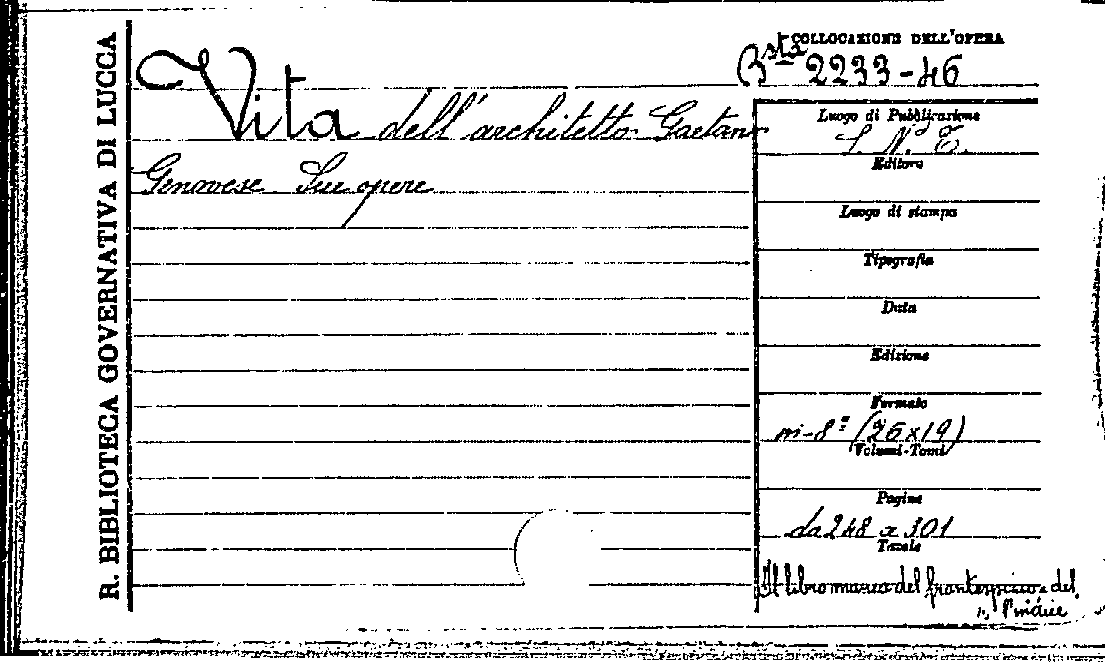 R. BIBLIOTECA GOVERNATIVA DI LUCCA
COLLOCAZIONE DELL'OPERA
Bsta 2233-46
Vita dell'architetto Gaetano
Genovese Sue opere
Luogo di Pubblicazione
S. N. T.
Editore
Luogo di stampa
Tipografia
Data
Edizione
Formato
in-8º (26x19)
Volumi-Tomi
Pagine
da 248 a 301
Tavole
Il libro manca del frontespizio e del
l'indice